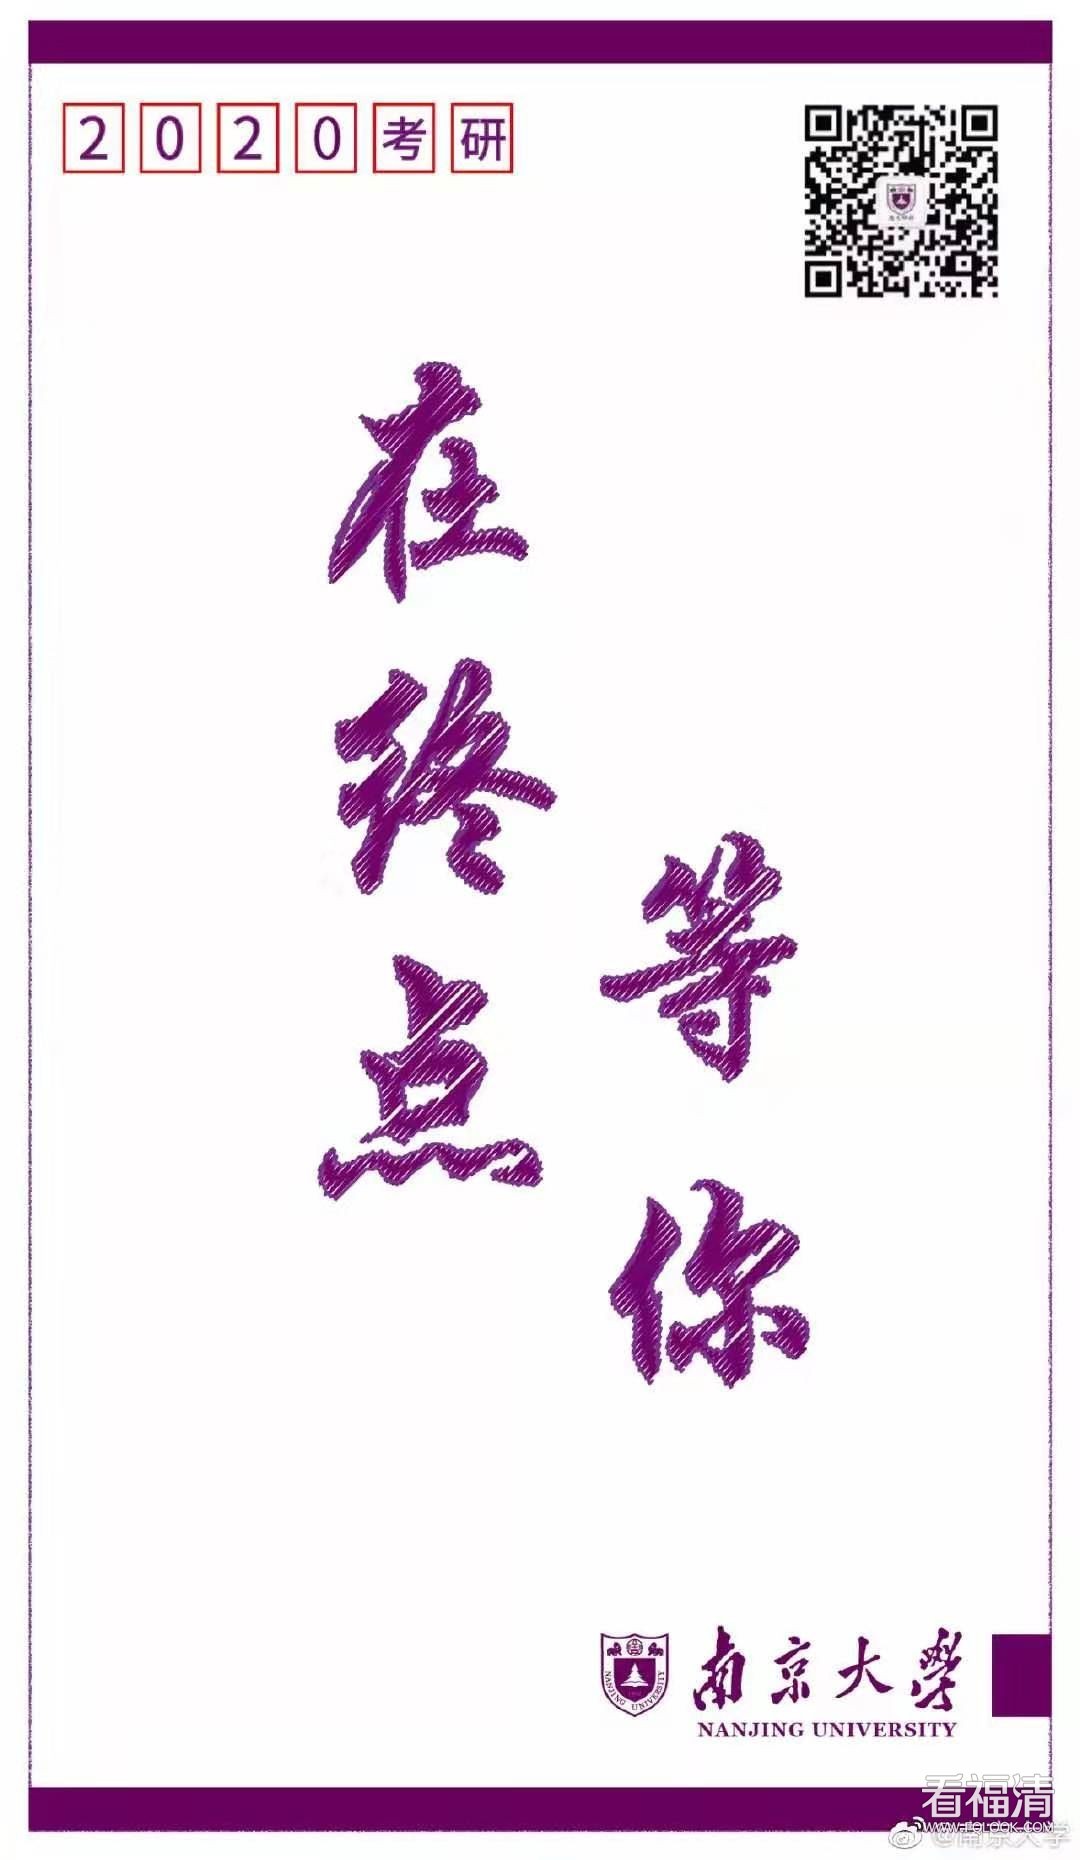 2020考研
在终点
等你
南京大学
NANJING UNIVERSITY
NANJING UNIVERSITY
看福清
WWW.FQLOOK.COM
@南京大学